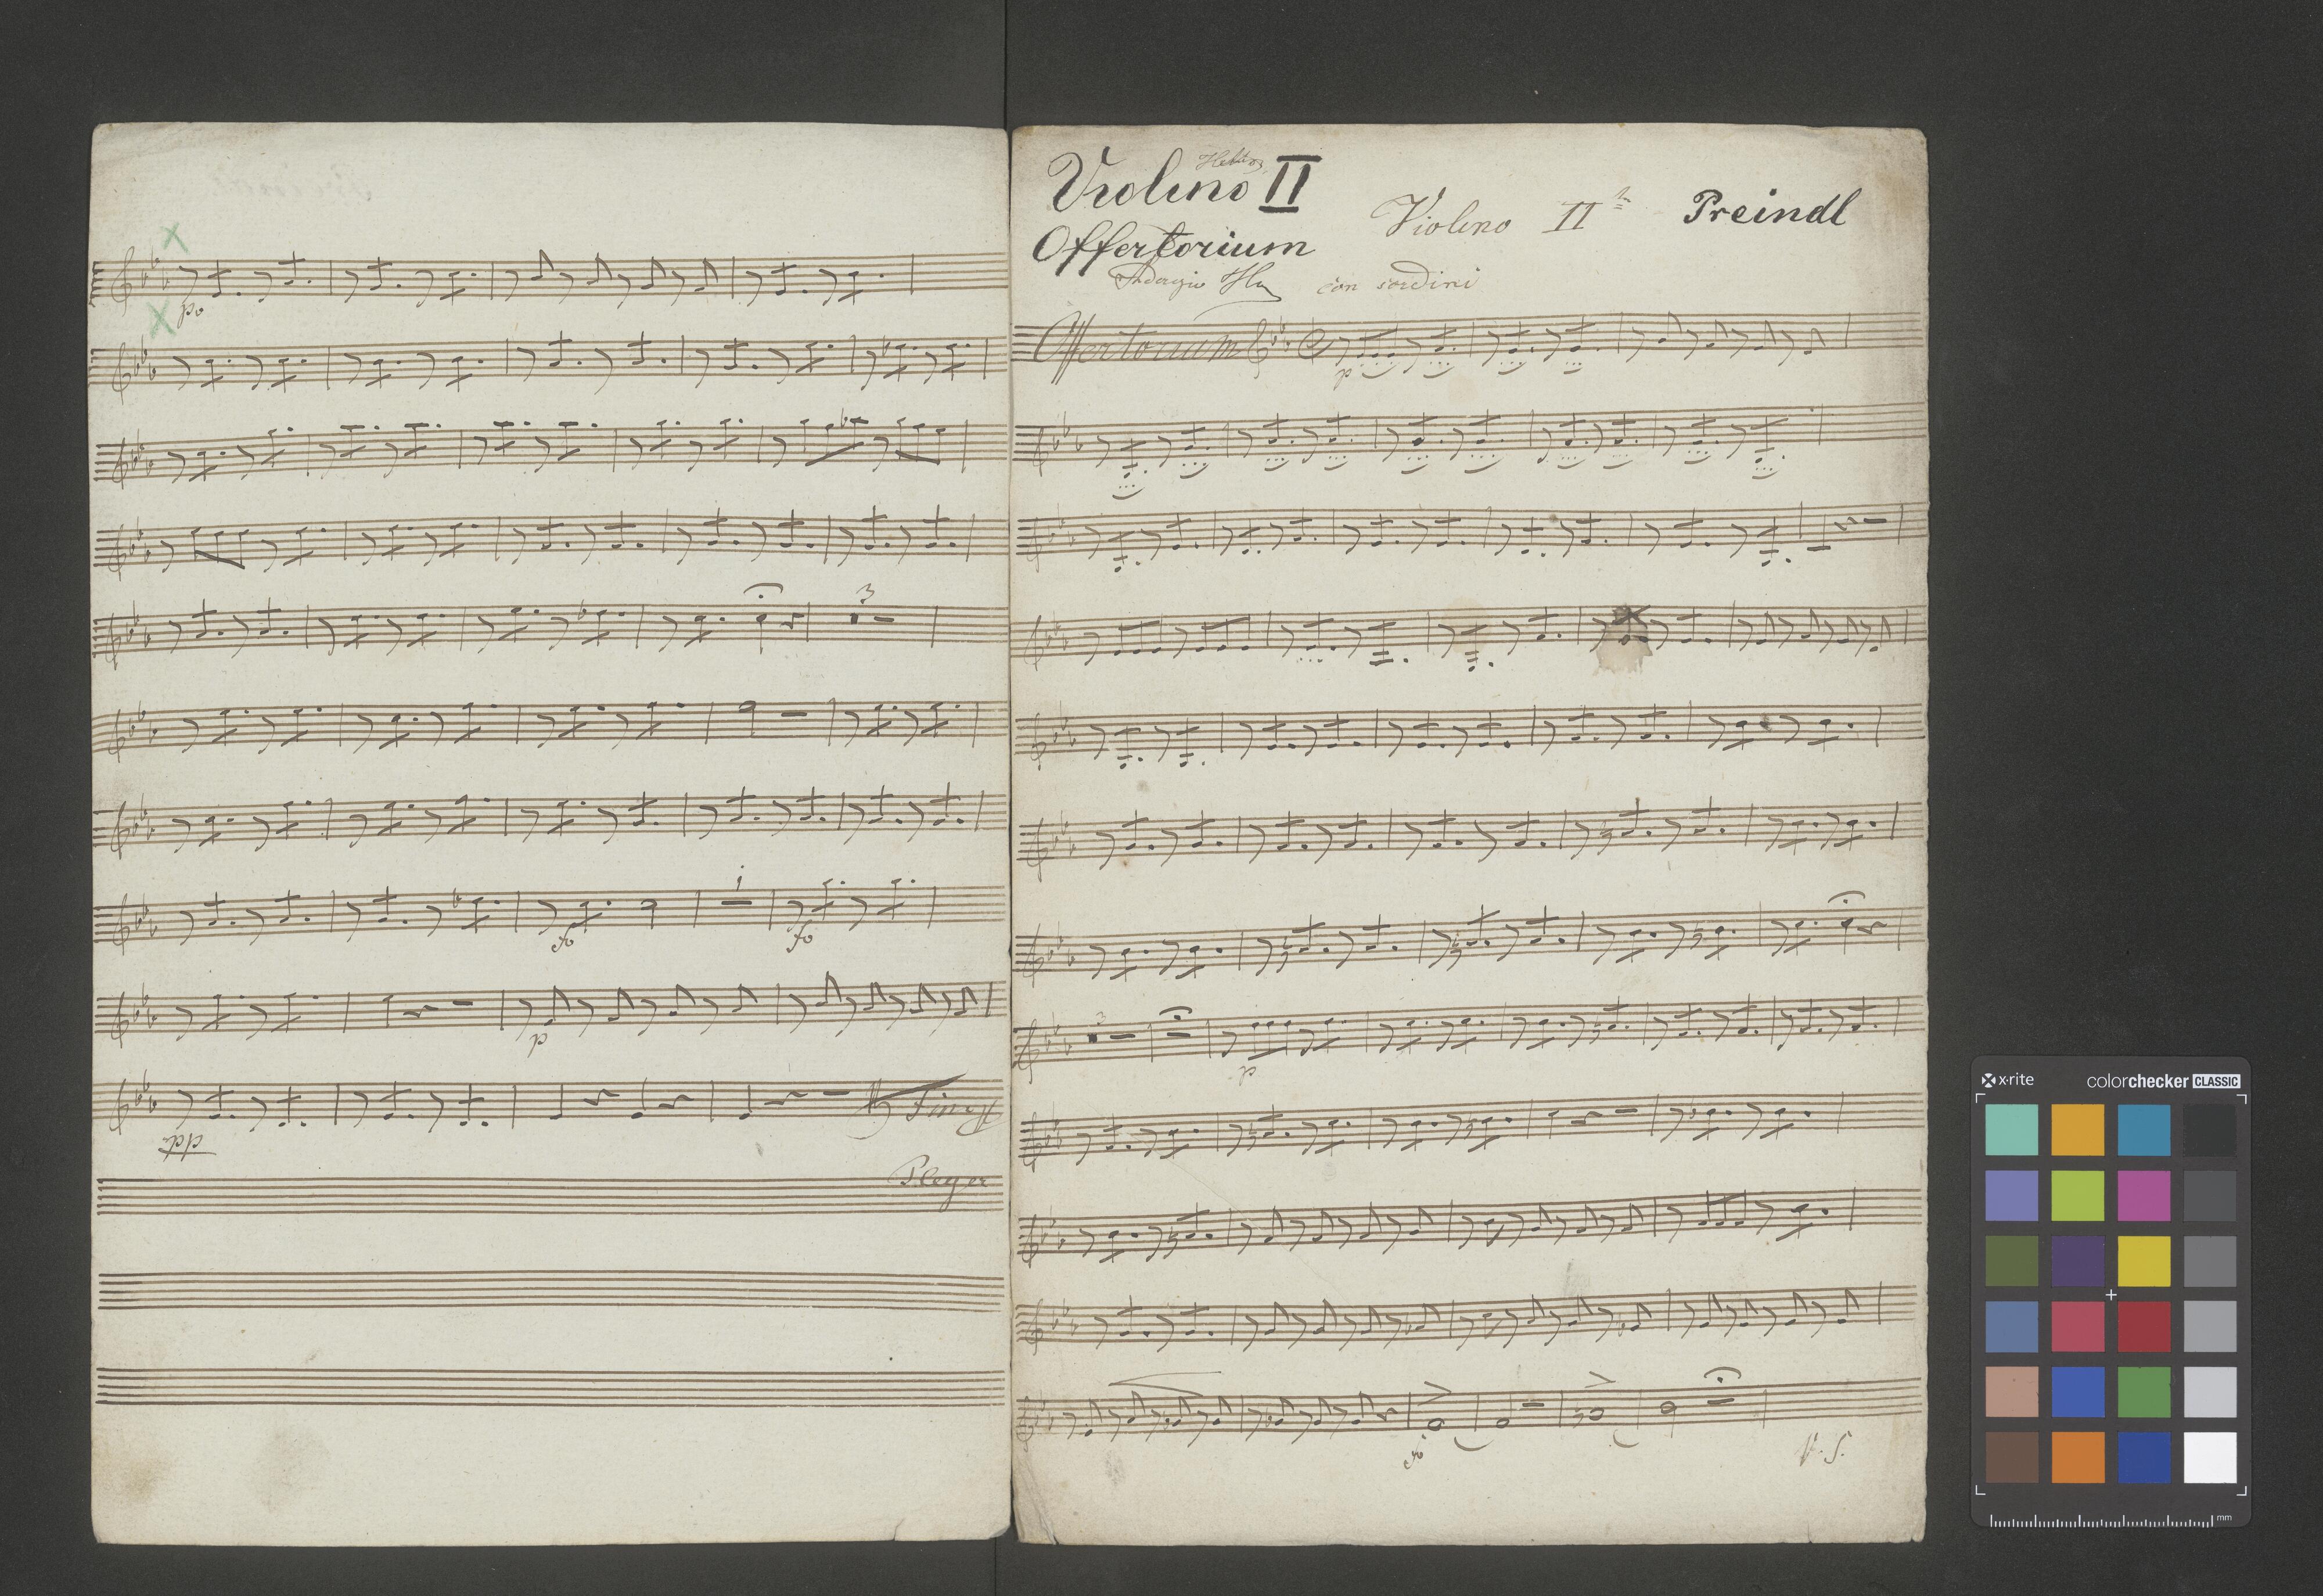 po
3
fo
1
fo
p
Fine
Pleyer
Violino II
Offertorium
Violino II
Preindl
con sordini
Offertorium
p
3
p
fo
V. S.
x-rite
colorchecker CLASSIC
mm